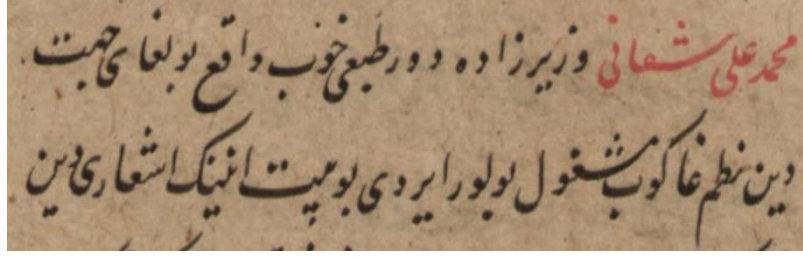 محمد علی شفائی وزیر زاده دور طبعی خوب واقع بولغای جهت
دین نظم غا کوب مشغول بولور ایردی بو بیت انینک اشعاری دین